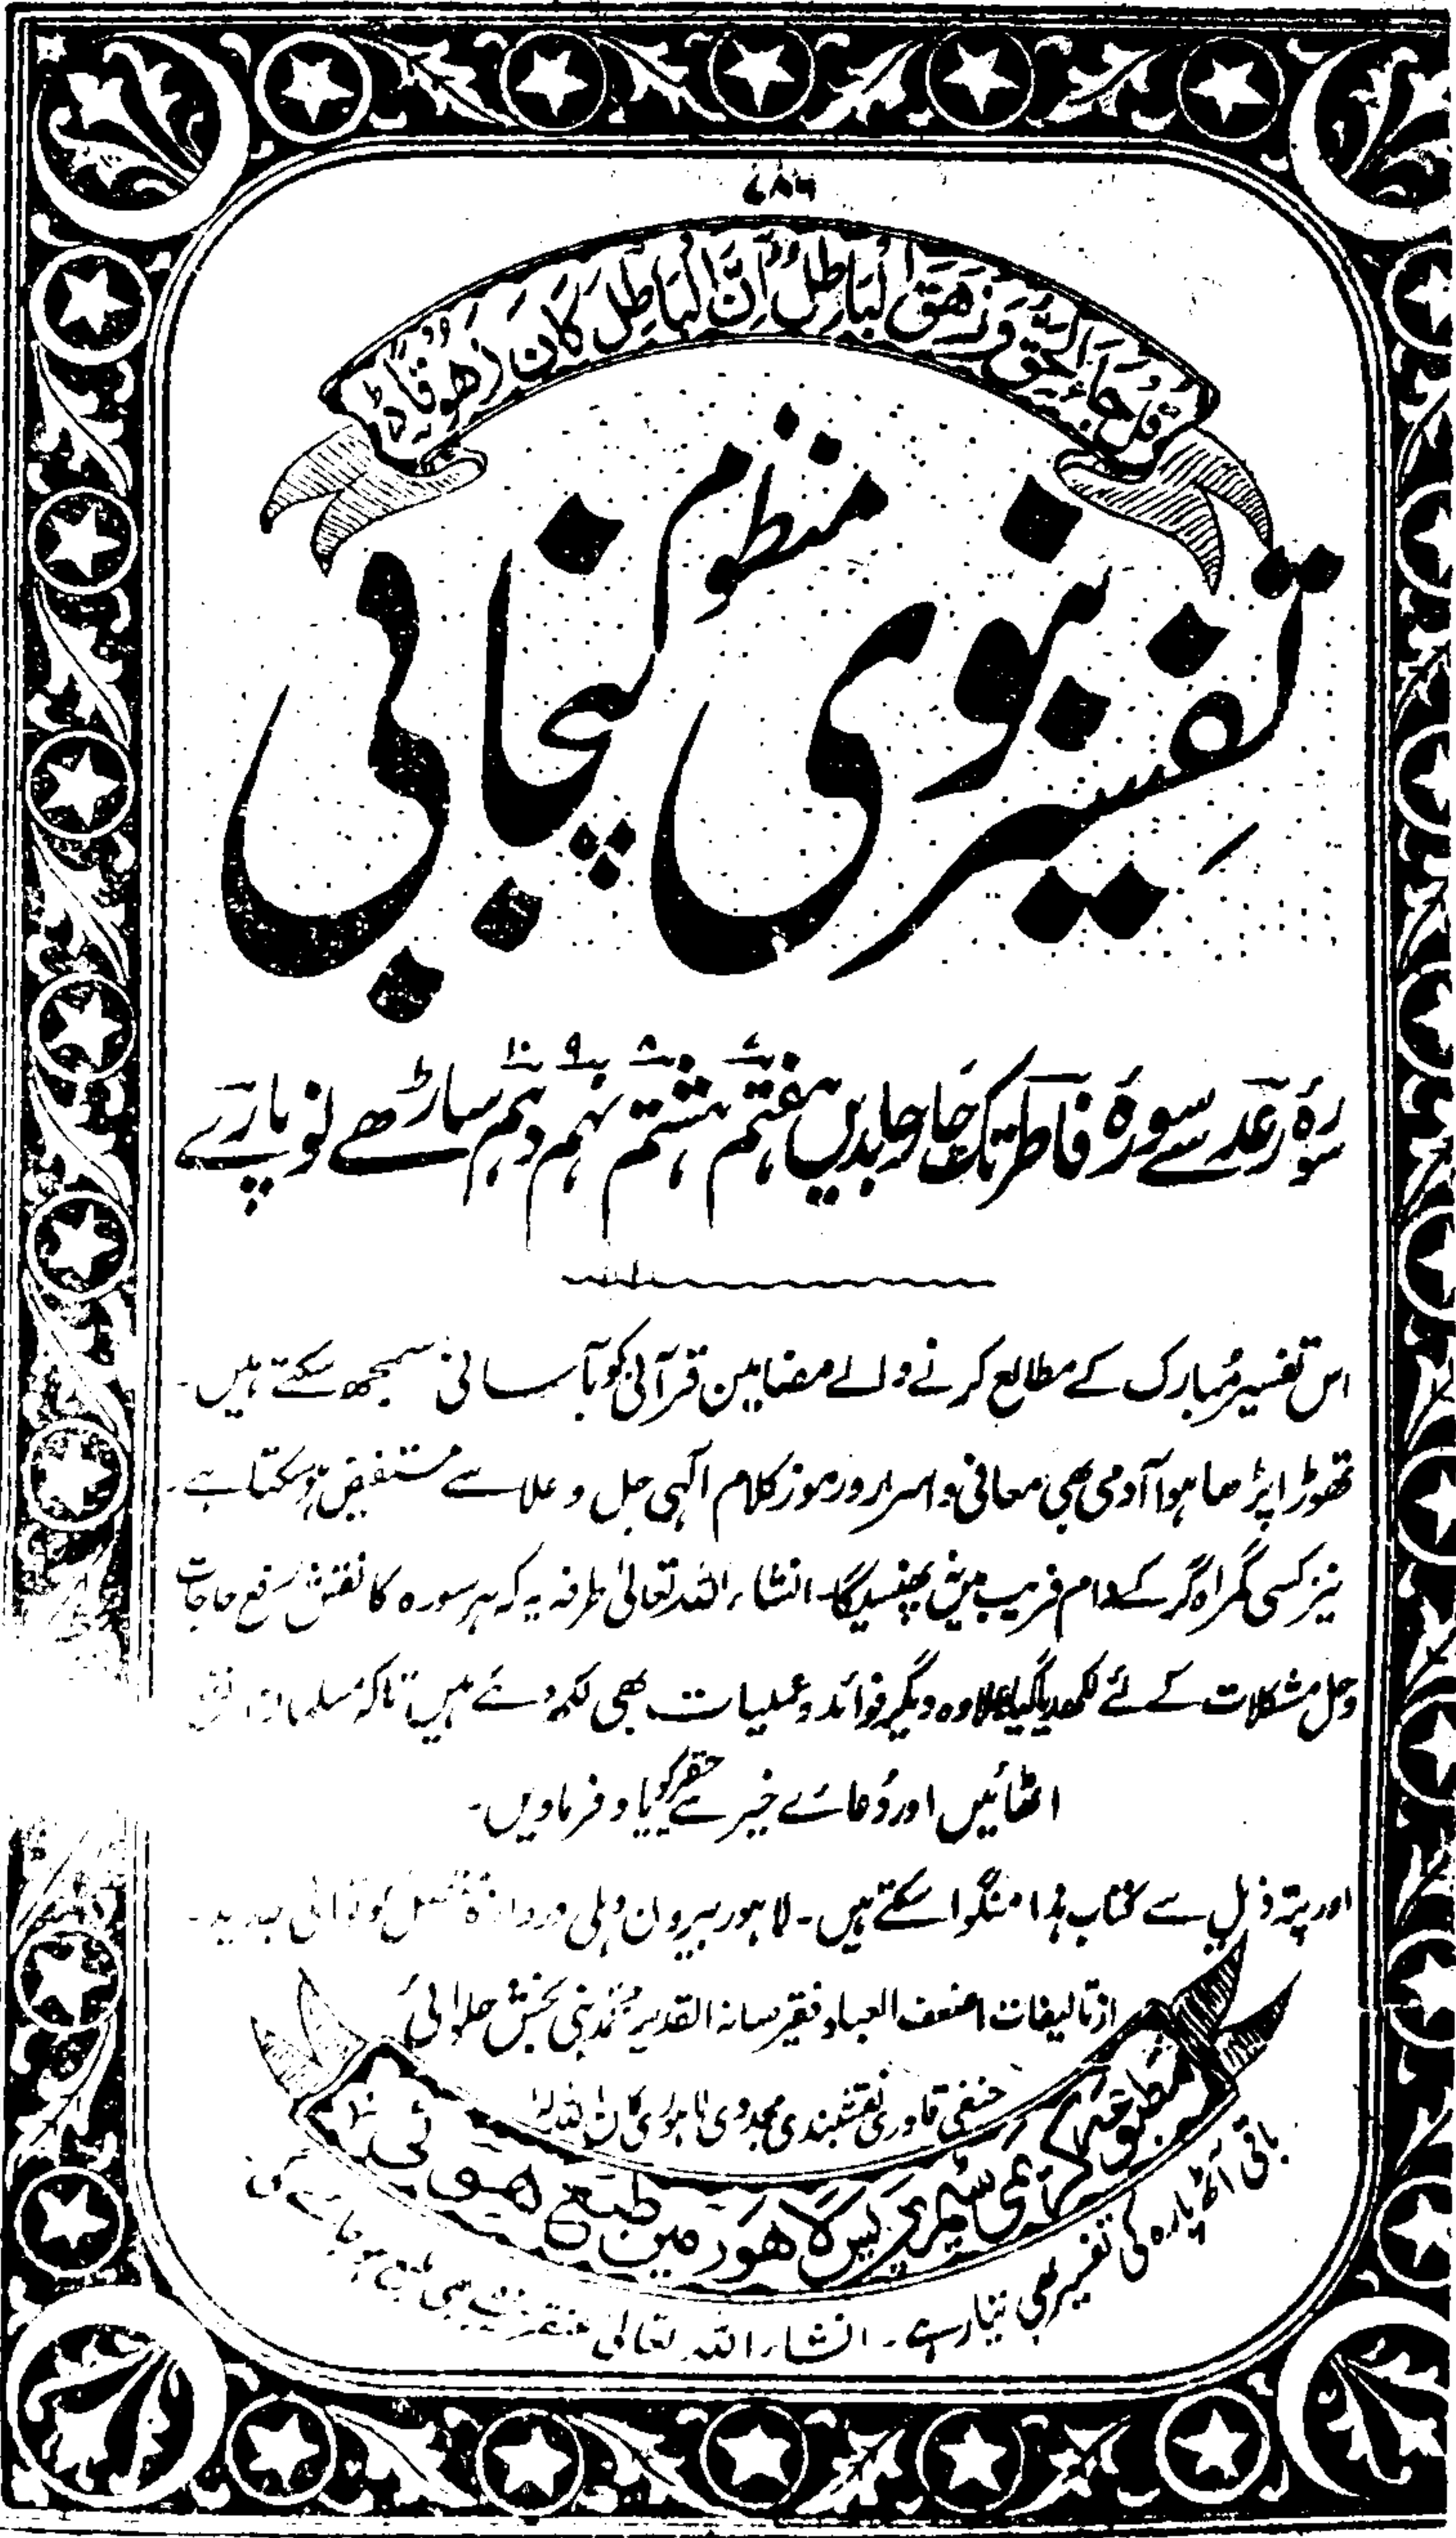 ۷۸۶
قُلْ جَاءَ الْحَقُّ وَزَهَقَ الْبَاطِلُ اِنَّ الْبَاطِلَ كَانَ زَهُوْقًا
تفسیر نبوی منظوم پنجابی
۷ ۸ ۹ ۱۰
سورۂ رعد سے سورۂ فاطر تک چار جلدیں ہفتم ہشتم نہم دہم ساڑھے نو پارے
اس تفسیر مُبارک کے مطالع کرنے والے مضامین قرآنی کو بآسانی سمجھ سکتے ہیں۔
تھوڑا پڑھا ہوا آدمی بھی معانی و اسرار و رموز کلام الٰہی جل و علا سے مستفیض ہو سکتا ہے۔
نیز کسی گمراہ گر کے دام فریب میں پھنسیگا۔ انشاء اللہ تعالیٰ طرفہ یہ کہ ہر سورہ کا نقش رفع حاجات
و حل مشکلات کے لئے لکھدیا گیا علاوہ دیگر فوائد و عملیات بھی لکھ دئے ہیں تاکہ مسلمان نفع
اٹھائیں اور دُعائے خیر سے حقیر کو یاد فرماویں۔
اور پتہ ذیل سے کتاب ہٰذا منگوا سکتے ہیں۔ لاہور بیرون دہلی دروازہ کوتوالی جدید۔
از تالیفات اضعف العباد فقیر سانہ القدیر محمد نبی بخش حلوائی
حنفی قادری نقشبندی مجددی لاہوری کان اللہ لہ
مطبوعہ کریمی سٹیم پریس لاہور میں طبع ہوئی
باقی آٹھ پارہ کی تفسیر بھی تیار ہے۔ انشاء اللہ تعالیٰ عنقریب ہی طبع ہو جائے گی